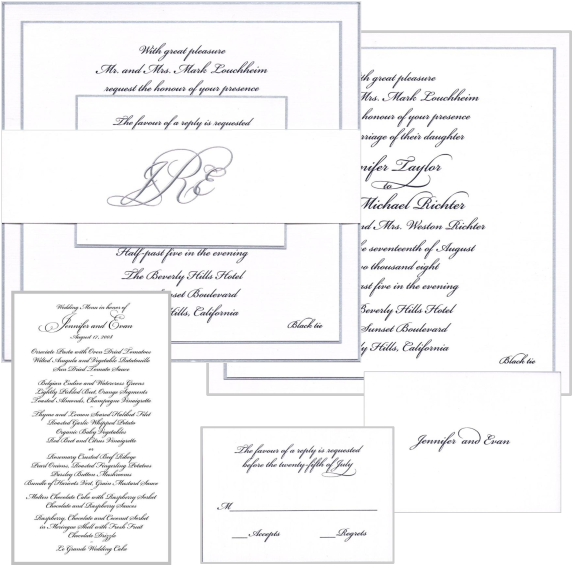 With great pleasure
Mr. and Mrs. Mark Louchheim
request the honour of your presence
The favour of a reply is requested
JRE
Half-past five in the evening
The Beverly Hills Hotel
nset Boulevard
Hills, California
Black tie
th great pleasure
Mrs. Mark Louchheim
he honour of your presence
rriage of their daughter
nifer Taylor
to
Michael Richter
nd Mrs. Weston Richter
e seventeenth of August
wo thousand eight
ast five in the evening
Beverly Hills Hotel
Sunset Boulevard
y Hills, California
Black tie
Wedding Menu in honor of
Jennifer and Evan
August 17, 2008
Orecciate Pasta with Oven Dried Tomatoes
Wilted Arugula and Vegetable Ratatouille
Sun Dried Tomato Sauce
~
Belgian Endive and Watercress Greens
Lightly Pickled Beet, Orange Segments
Toasted Almonds, Champagne Vinaigrette
~
Thyme and Lemon Seared Halibut Filet
Roasted Garlic Whipped Potato
Organic Baby Vegetables
Red Beet and Citrus Vinaigrette
or
Rosemary Crusted Beef Ribeye
Pearl Onions, Roasted Fingerling Potatoes
Parsley Button Mushrooms
Bundle of Haricots Vert, Grain Mustard Sauce
~
Molten Chocolate Cake with Raspberry Sorbet
Chocolate and Raspberry Sauces
~
Raspberry, Chocolate and Coconut Sorbet
in Meringue Shell with Fresh Fruit
Chocolate Drizzle
~
Le Grande Wedding Cake
The favour of a reply is requested
before the twenty-fifth of July
M
Accepts Regrets
Jennifer and Evan